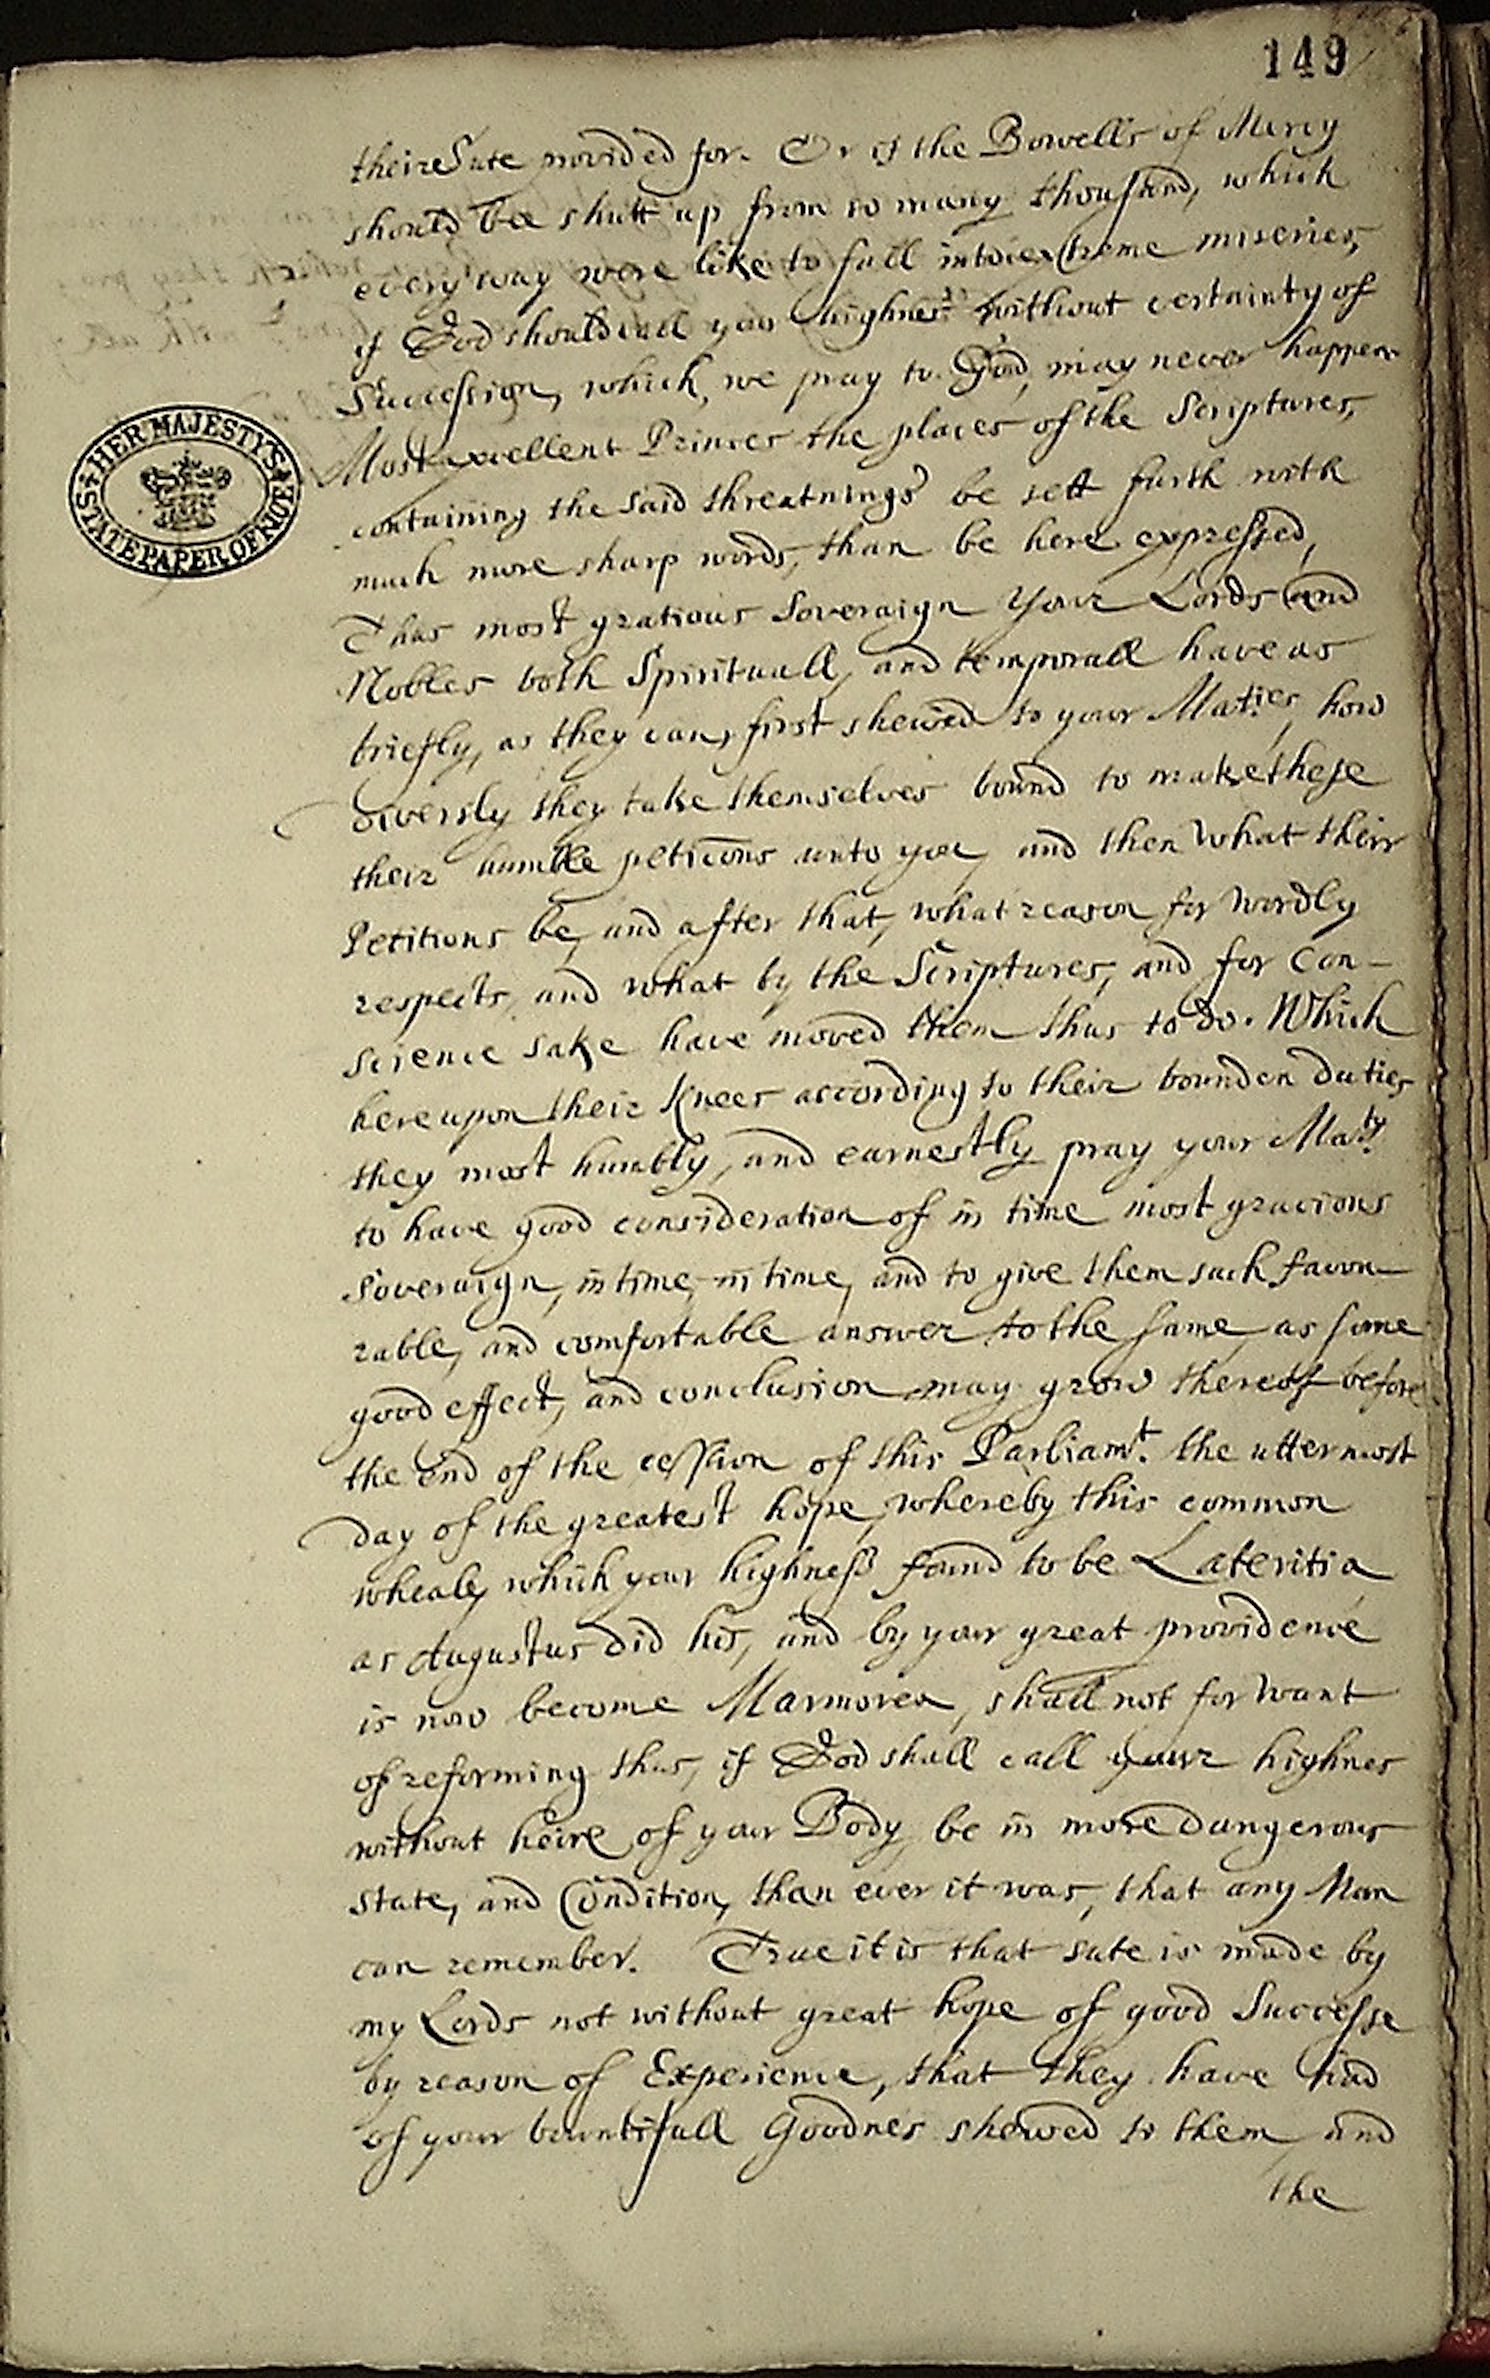 149
theire Sute provided for. Or if the Bowells of Mercy
should bee shutt up from so many thousand, which
every way were like to fall into extreme miseries,
if God should call your highnes without certainty of
Succession, which, we pray to God, may never happen
Most excellent Princes the places of the Scriptures,
containing the said threatnings be sett furth with
much more sharp words, than be here expressed,
Thus most gratious Soveraign Your Lords and
Nobles both Spirituall, and temporall have as
briefly, as they can, first shewed to your Maties, how
diversly they take themselves bound to make these
their humble peticons unto you, and then what their
Petitions be, and after that, what reason for wordly
respects, and what by the Scriptures, and for Con-
science sake have moved them thus to do. Which
here upon their Knees according to their bounden duties
they most humbly, and earnestly pray your Maty
to have good consideration of in time most gracious
Soveraign, in time, in time, and to give them such favou
rable, and comfortable answer to the same, as some
good effect, and conclusion may grow thereof before
the End of the cession of this Parliamt. the uttermost
day of the greatest hope, whereby this common
wheale, which your highness found to be Lateritia
as Augustus did his, and by your great providence
is now become Marmorea, shall not for want
of reforming thus, if God shall call your highnes
without heire of your Body, be in more dangerous
state, and Condition, than ever it was, that any Man
can remember. True it is that sute is made by
my Lords not without great hope of good Successe
by reason of Experience, that they have had
of your bountifull Goodnes shewed to them, and
the
HER MAJESTY'S
STATE PAPER OFFICE